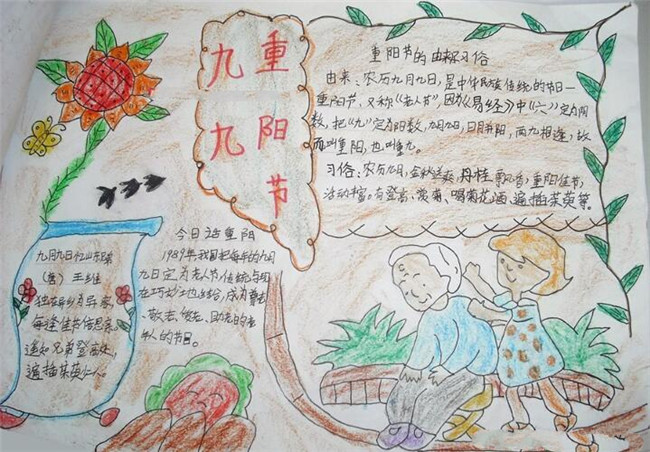 重阳节
九九
重阳节的由来习俗
由来：农历九月九日，是中华民族传统的节日—
重阳节，又称《老人节》，因为《易经》中《六》定为阴
数，把《九》定为阳数，九月九日，日月并阳，两九相逢，故
而叫重阳，也叫重九。
习俗：农历九日，金秋送爽，丹桂飘香，重阳佳节，
活动丰富，有登高、赏菊、喝菊花酒、遍插茱萸等。
今日话重阳
1989年我国把每年的九月
九日定为老人节，传统与现
在巧妙地结合，成为尊老
、敬老、爱老、助老的老
年人的节日。
九月九日忆山东兄弟
（唐）王维
独在异乡为异客
每逢佳节倍思亲
遥知兄弟登高处，
遍插茱萸少一人